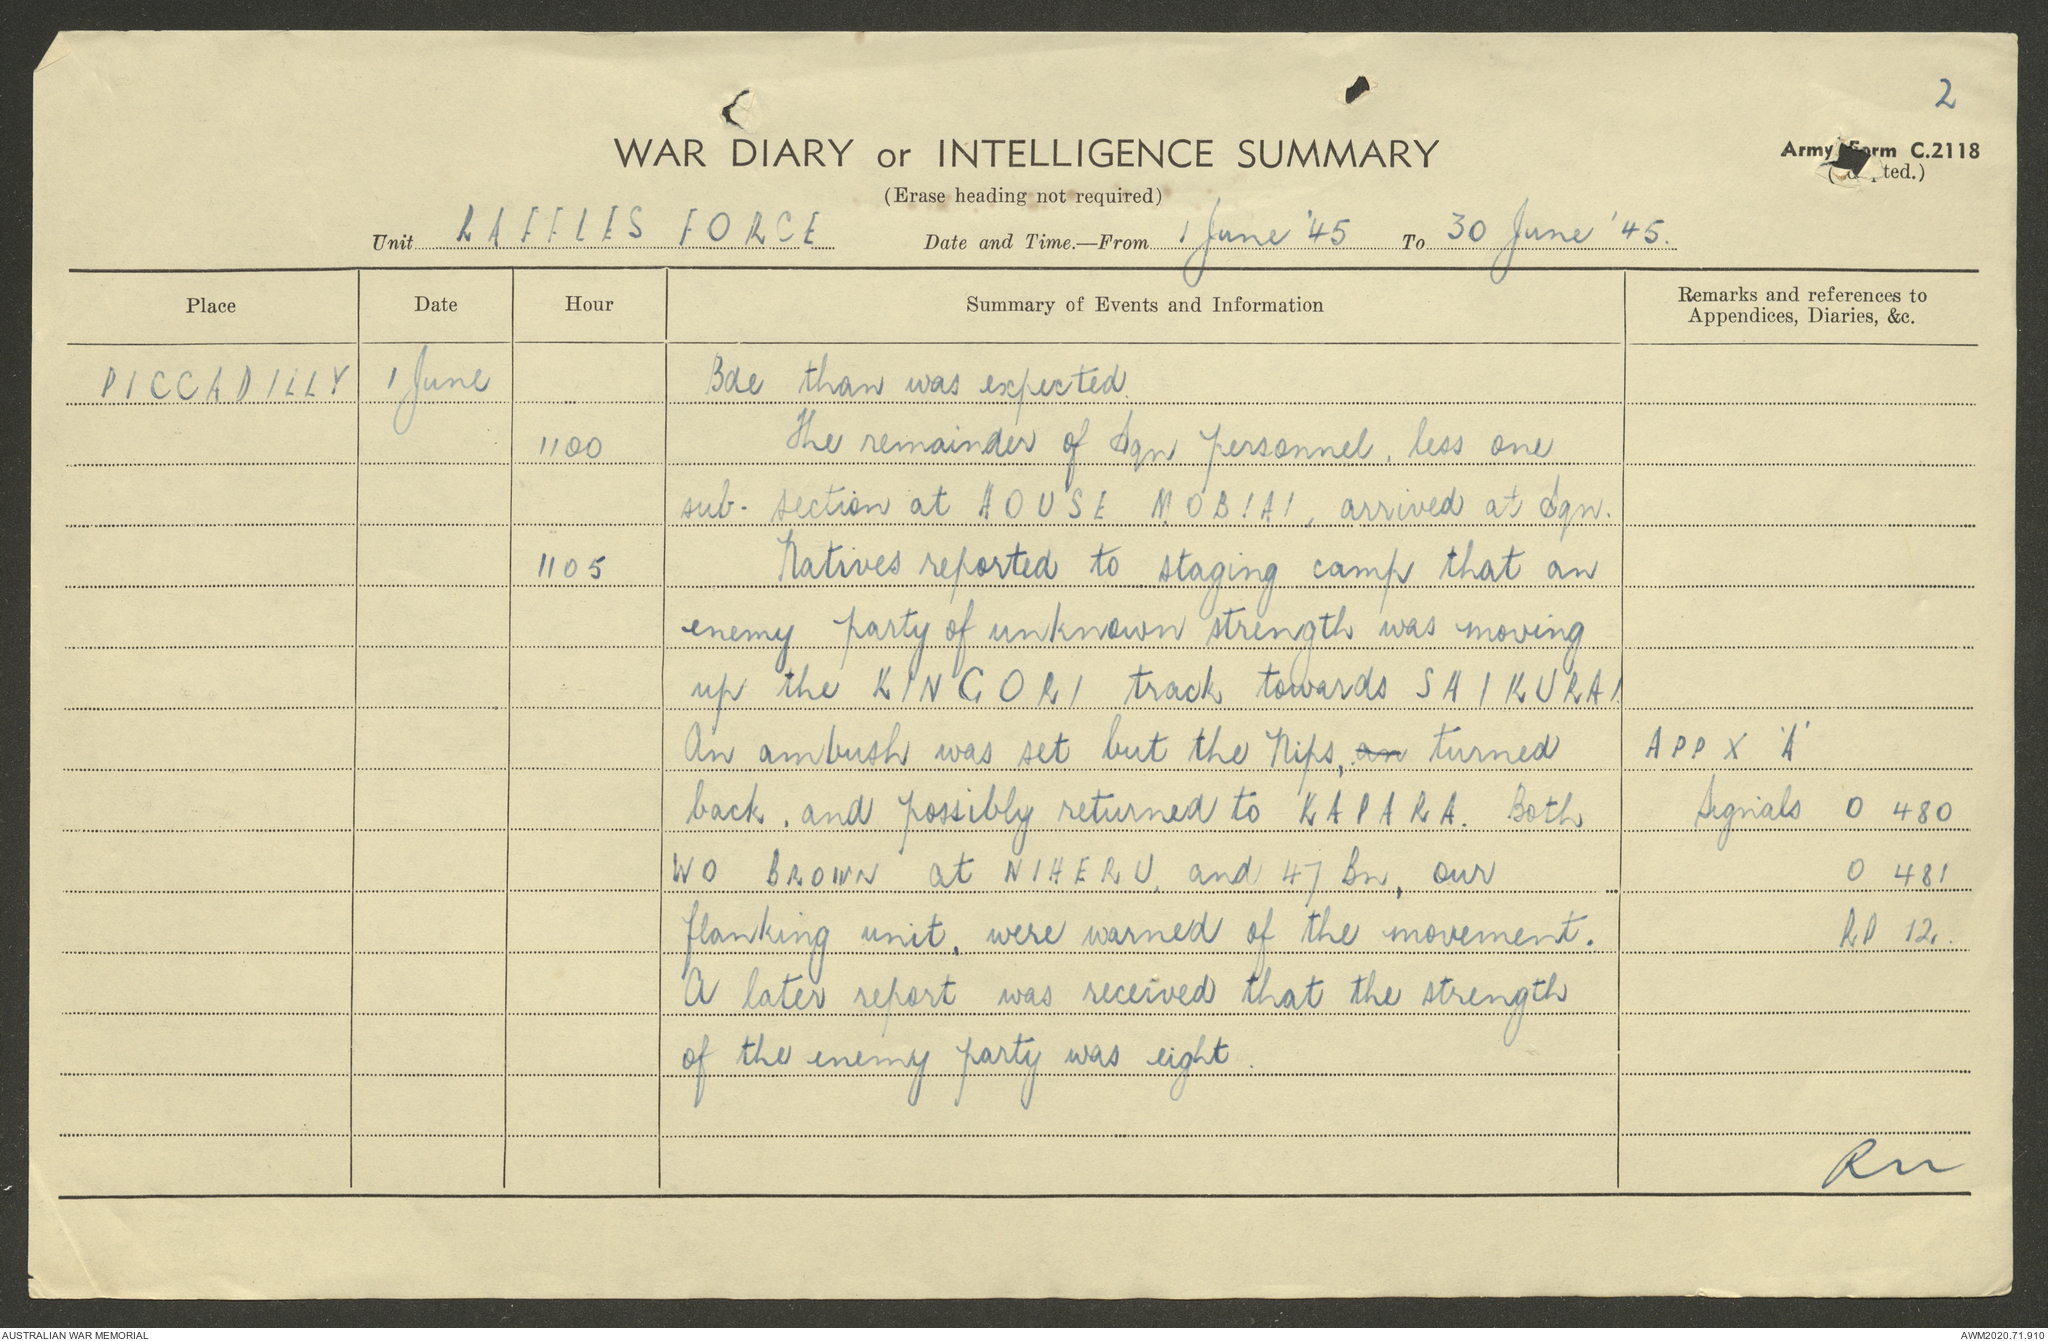 2
WAR DIARY or INTELLIGENCE SUMMARY
Army Form C.2118
(Erase heading not required)
Unit RAFFLES FORCE Date and Time.—From 1 June '45 To 30 June '45.
Place Date Hour Summary of Events and Information Remarks and references to Appendices, Diaries, &c.
PICCADILLY 1 June Bde than was expected.
1100 The remainder of Sqn personnel, less one
sub-section at HOUSE MOBIAI, arrived at Sqn.
1105 Natives reported to staging camp that an
enemy party of unknown strength was moving
up the KINGORI track towards SHIKURAI
An ambush was set but the Nips, an turned APPX 'A'
back, and possibly returned to KAPARA. Both Signals O 480
WO BROWN at NIHERU, and 47 Bn, our O 481
flanking unit, were warned of the movement. RP 12.
A later report was received that the strength
of the enemy party was eight.
AUSTRALIAN WAR MEMORIAL AWM2020.71.910